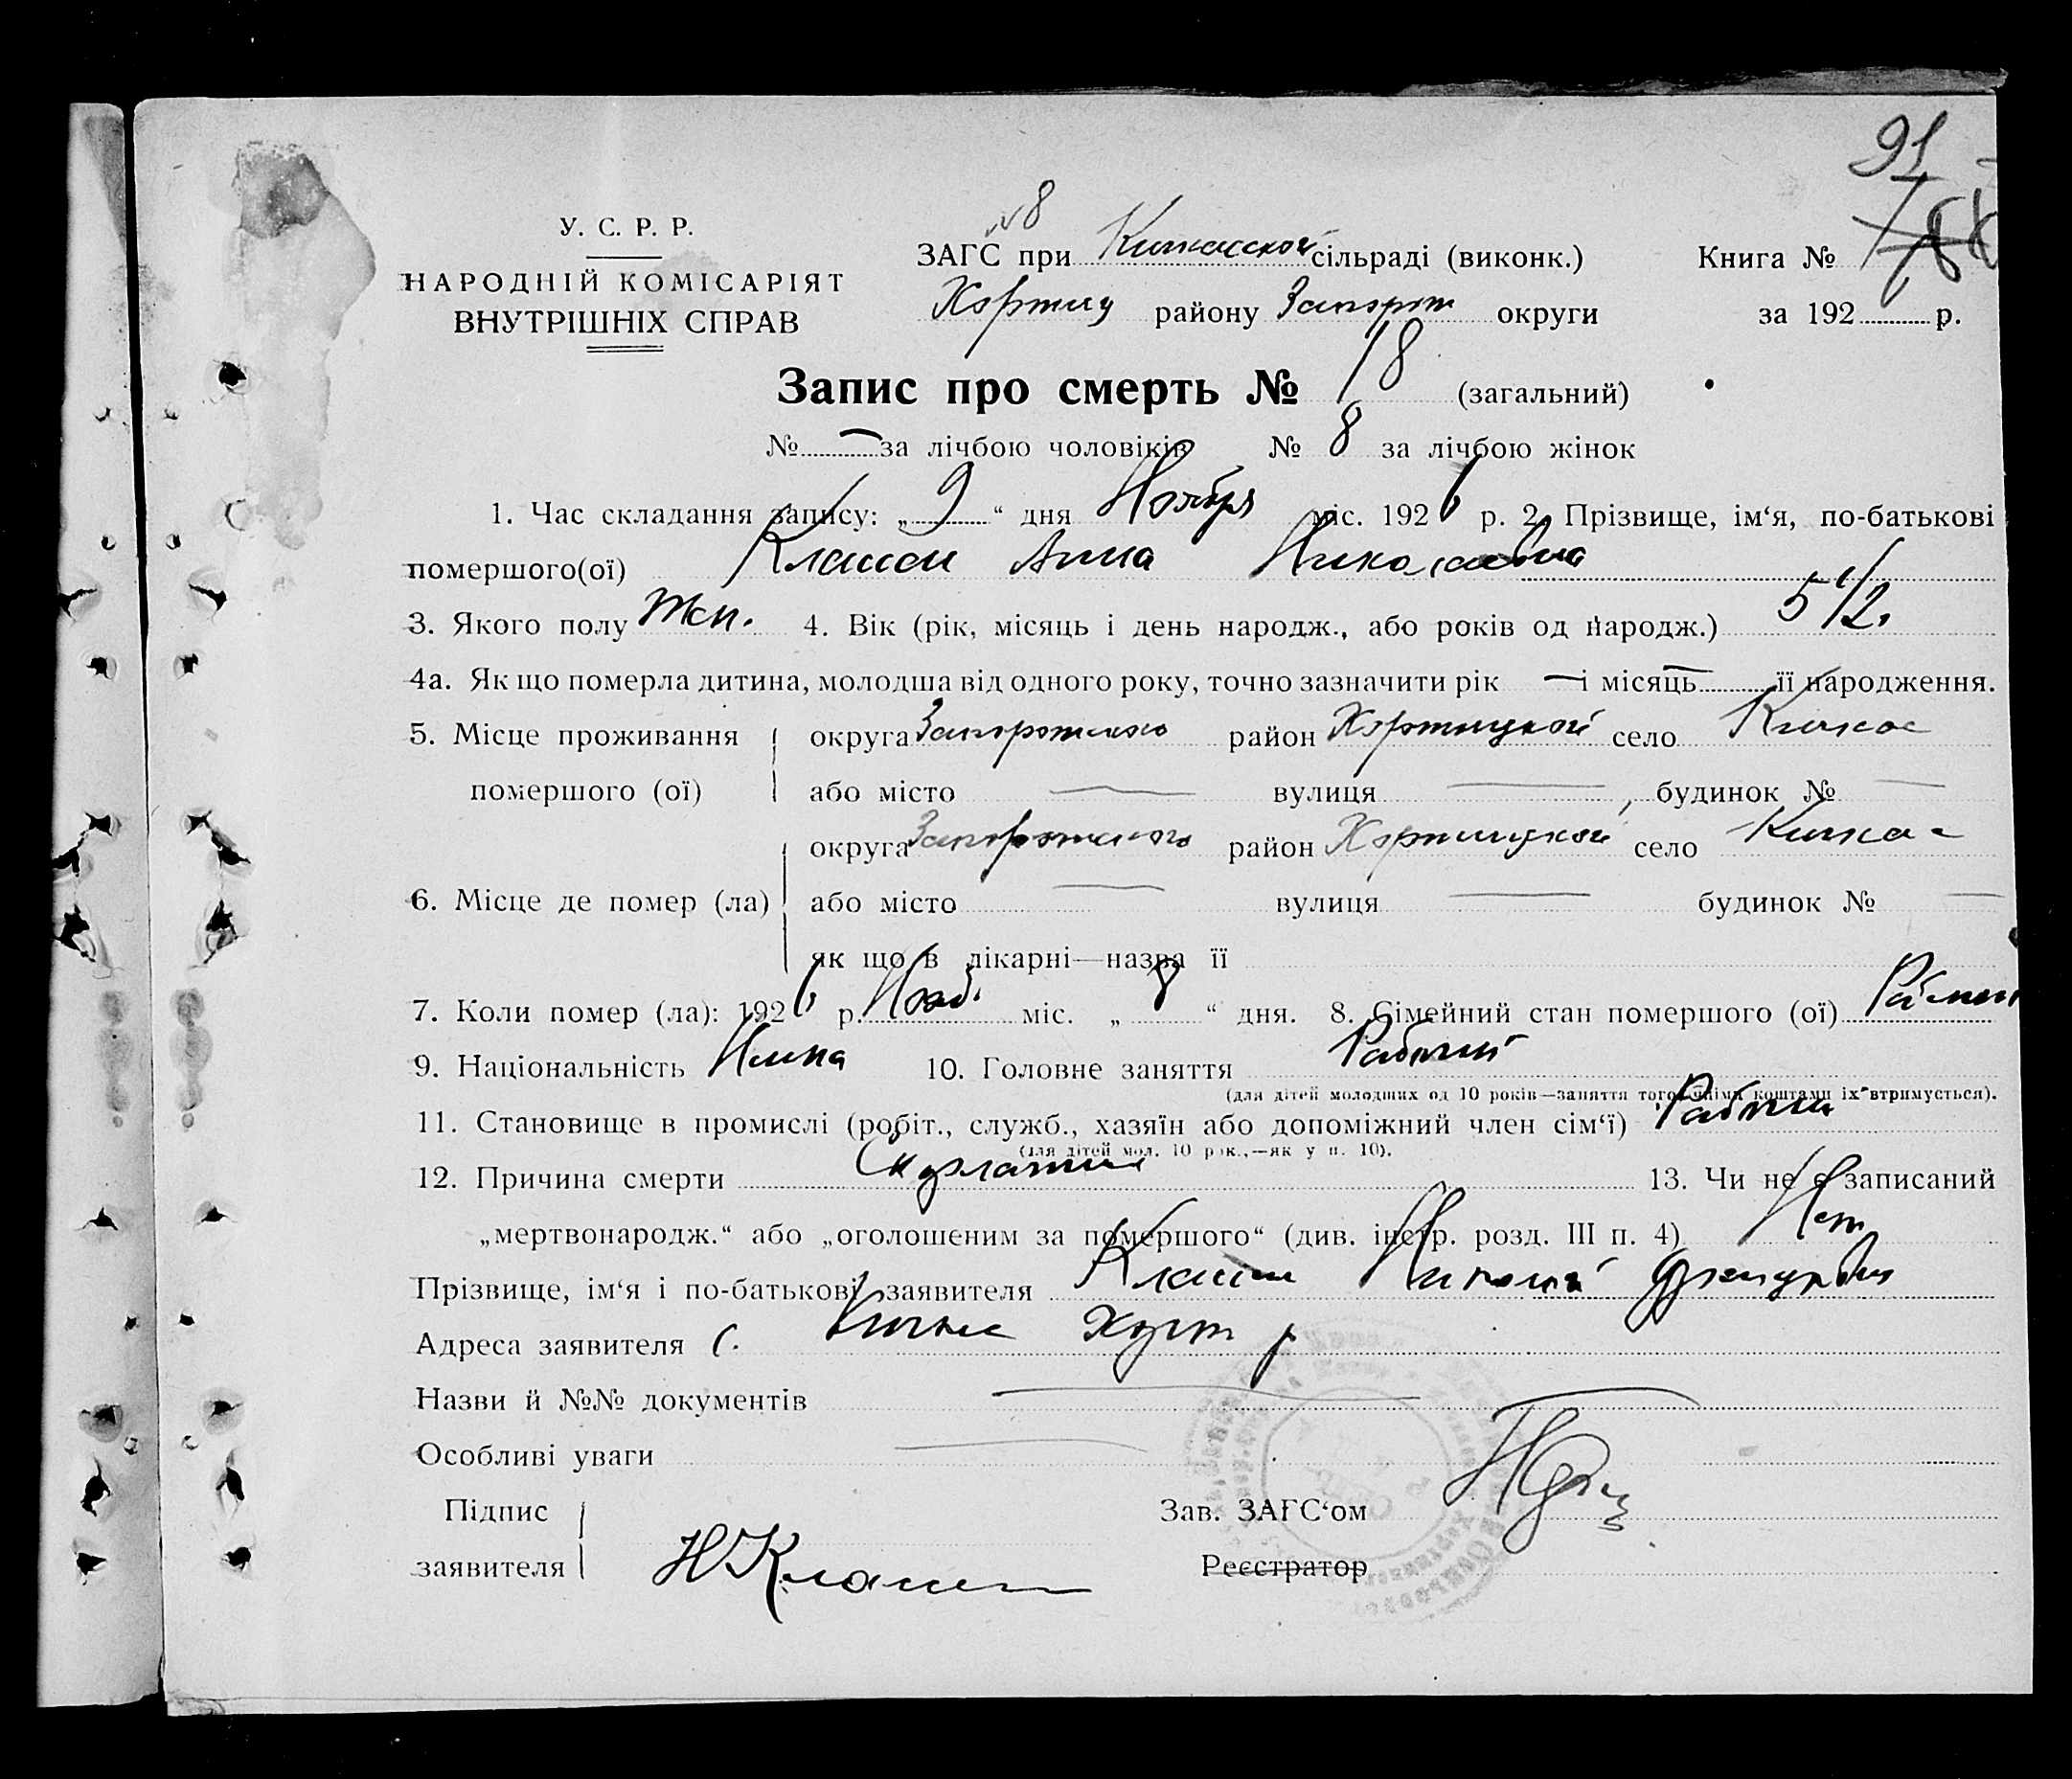 91
У. С. Р. Р.
НАРОДНІЙ КОМІСАРІЯТ
ВНУТРІШНІХ СПРАВ
№ 8
ЗАГС при Кичкасской сільраді (виконк.)
Книга №
Хортиц району Запорож округи
за 1926 р.
Запис про смерть № 18 (загальний)
№ — за лічбою чоловіків № 8 за лічбою жінок
1. Час складання запису: „ 9 “ дня Ноября міс. 1926 р. 2. Прізвище, ім‘я, по-батькові
помершого(ої) Классен Анна Николаевна
3. Якого полу Жен. 4. Вік (рік, місяць і день народж., або років од народж.) 5 1/2.
4а. Як що померла дитина, молодша від одного року, точно зазначити рік — і місяць — її народження.
5. Місце проживання округа Запорожского район Хортицкой село Кичкас
помершого (ої) або місто — вулиця — , будинок № —
округа Запорожского район Хортицкой село Кичкас
6. Місце де помер (ла) або місто — вулиця — будинок № —
як що в лікарні—назва її
7. Коли помер (ла): 1926 р. Нояб. міс. „ 8 “ дня. 8. Сімейний стан помершого (ої)
9. Національність Немка 10. Головне заняття Рабочий
(для дітей молодших од 10 років—заняття того чиїми коштами їх втримується).
11. Становище в промислі (робіт., служб., хазяїн або допоміжний член сім‘ї) Рабочий
(для дітей мол. 10 рок.,—як у п. 10).
12. Причина смерти Скарлатина 13. Чи не є записаний
„мертвонародж.“ або „оголошеним за помершого“ (див. інстр. розд. III п. 4) Нет
Прізвище, ім‘я і по-батькові заявителя Классен Николай
Адреса заявителя с. Кичкас Хорт р
Назви й №№ документів —
Особливі уваги —
Підпис
заявителя Н Классен
Зав. ЗАГС‘ом
Реєстратор